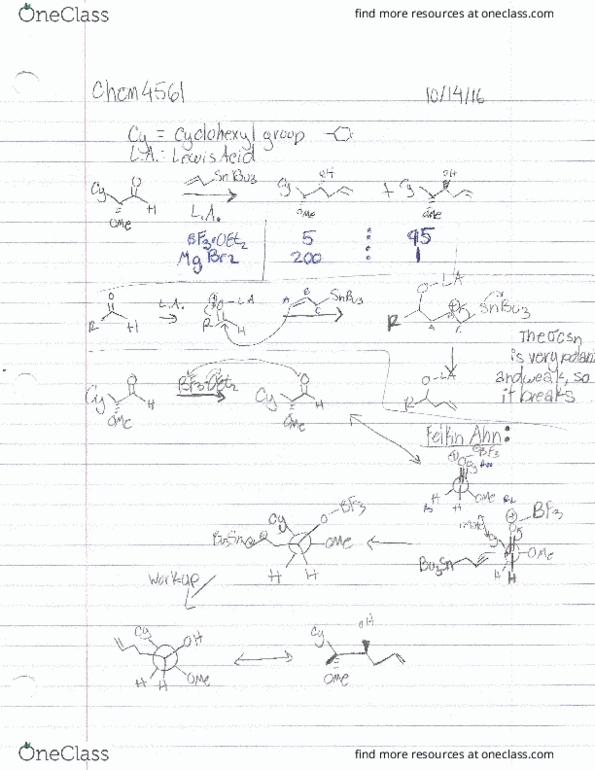 OneClass
find more resources at oneclass.com
Chem 4561
10/14/16
Cy = Cyclohexyl group
L.A.: Lewis Acid
SnBu3
OH
OH
Cy
O
Cy
+ Cy
H
L.A.
OMe
OMe
OMe
BF3·OEt2
5 : 95
MgBr2
200 : 1
O-LA
O
L.A.
O-LA
B
SnBu3
A
C
SnBu3
R
H
R
H
R
A
The σcsn
is very polar
and weak, so
it breaks
O-LA
R
O
BF3·OEt2
O
Cy
H
Cy
H
OMe
OMe
Felkin Ahn:
BF3
H
OMe
H
BF3
Cy
O-BF3
Bu3Sn
OMe
OMe
Bu3Sn
H H
H
workup
Cy
OH
Cy
OH
OMe
H H
OMe
OneClass
find more resources at oneclass.com